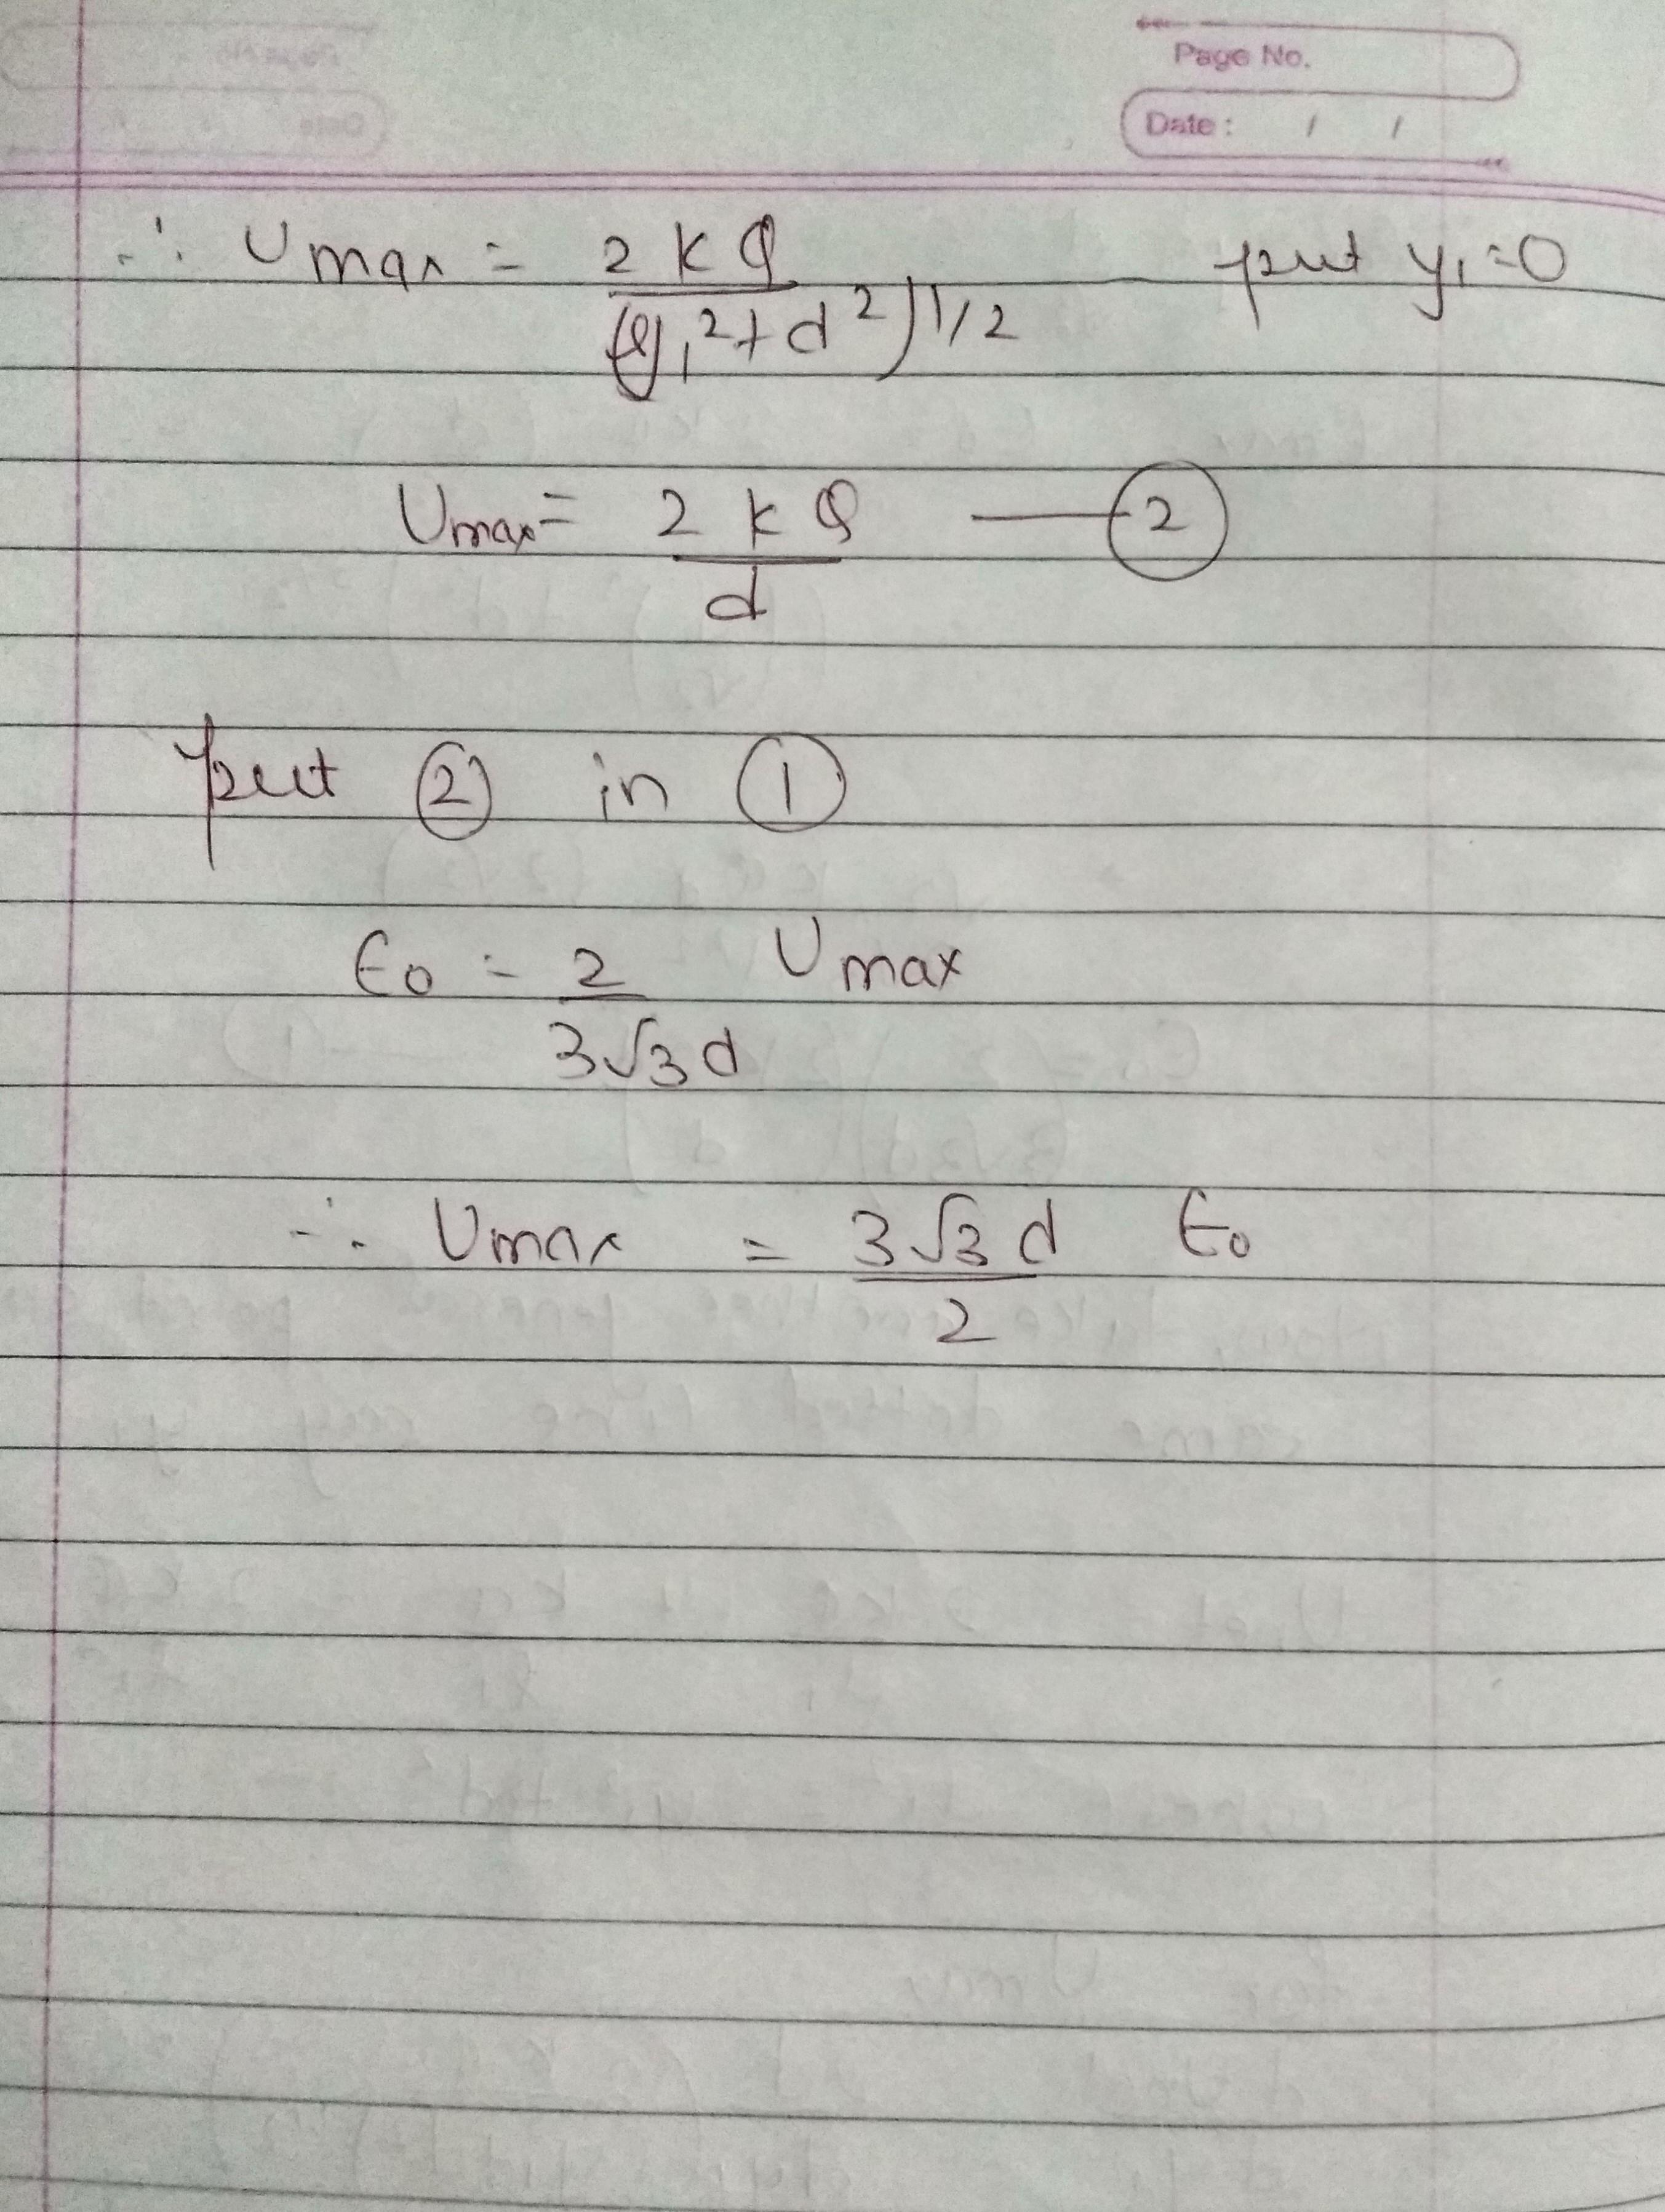 Page No.
Date : / /
∴ Umax = 2 k Q / (y₁² + d²)^1/2 put y₁ = 0
Umax = 2 k Q / d —— ②
put ② in ①
E₀ = 2 / 3√3 d Umax
∴ Umax = 3√3 d / 2 E₀